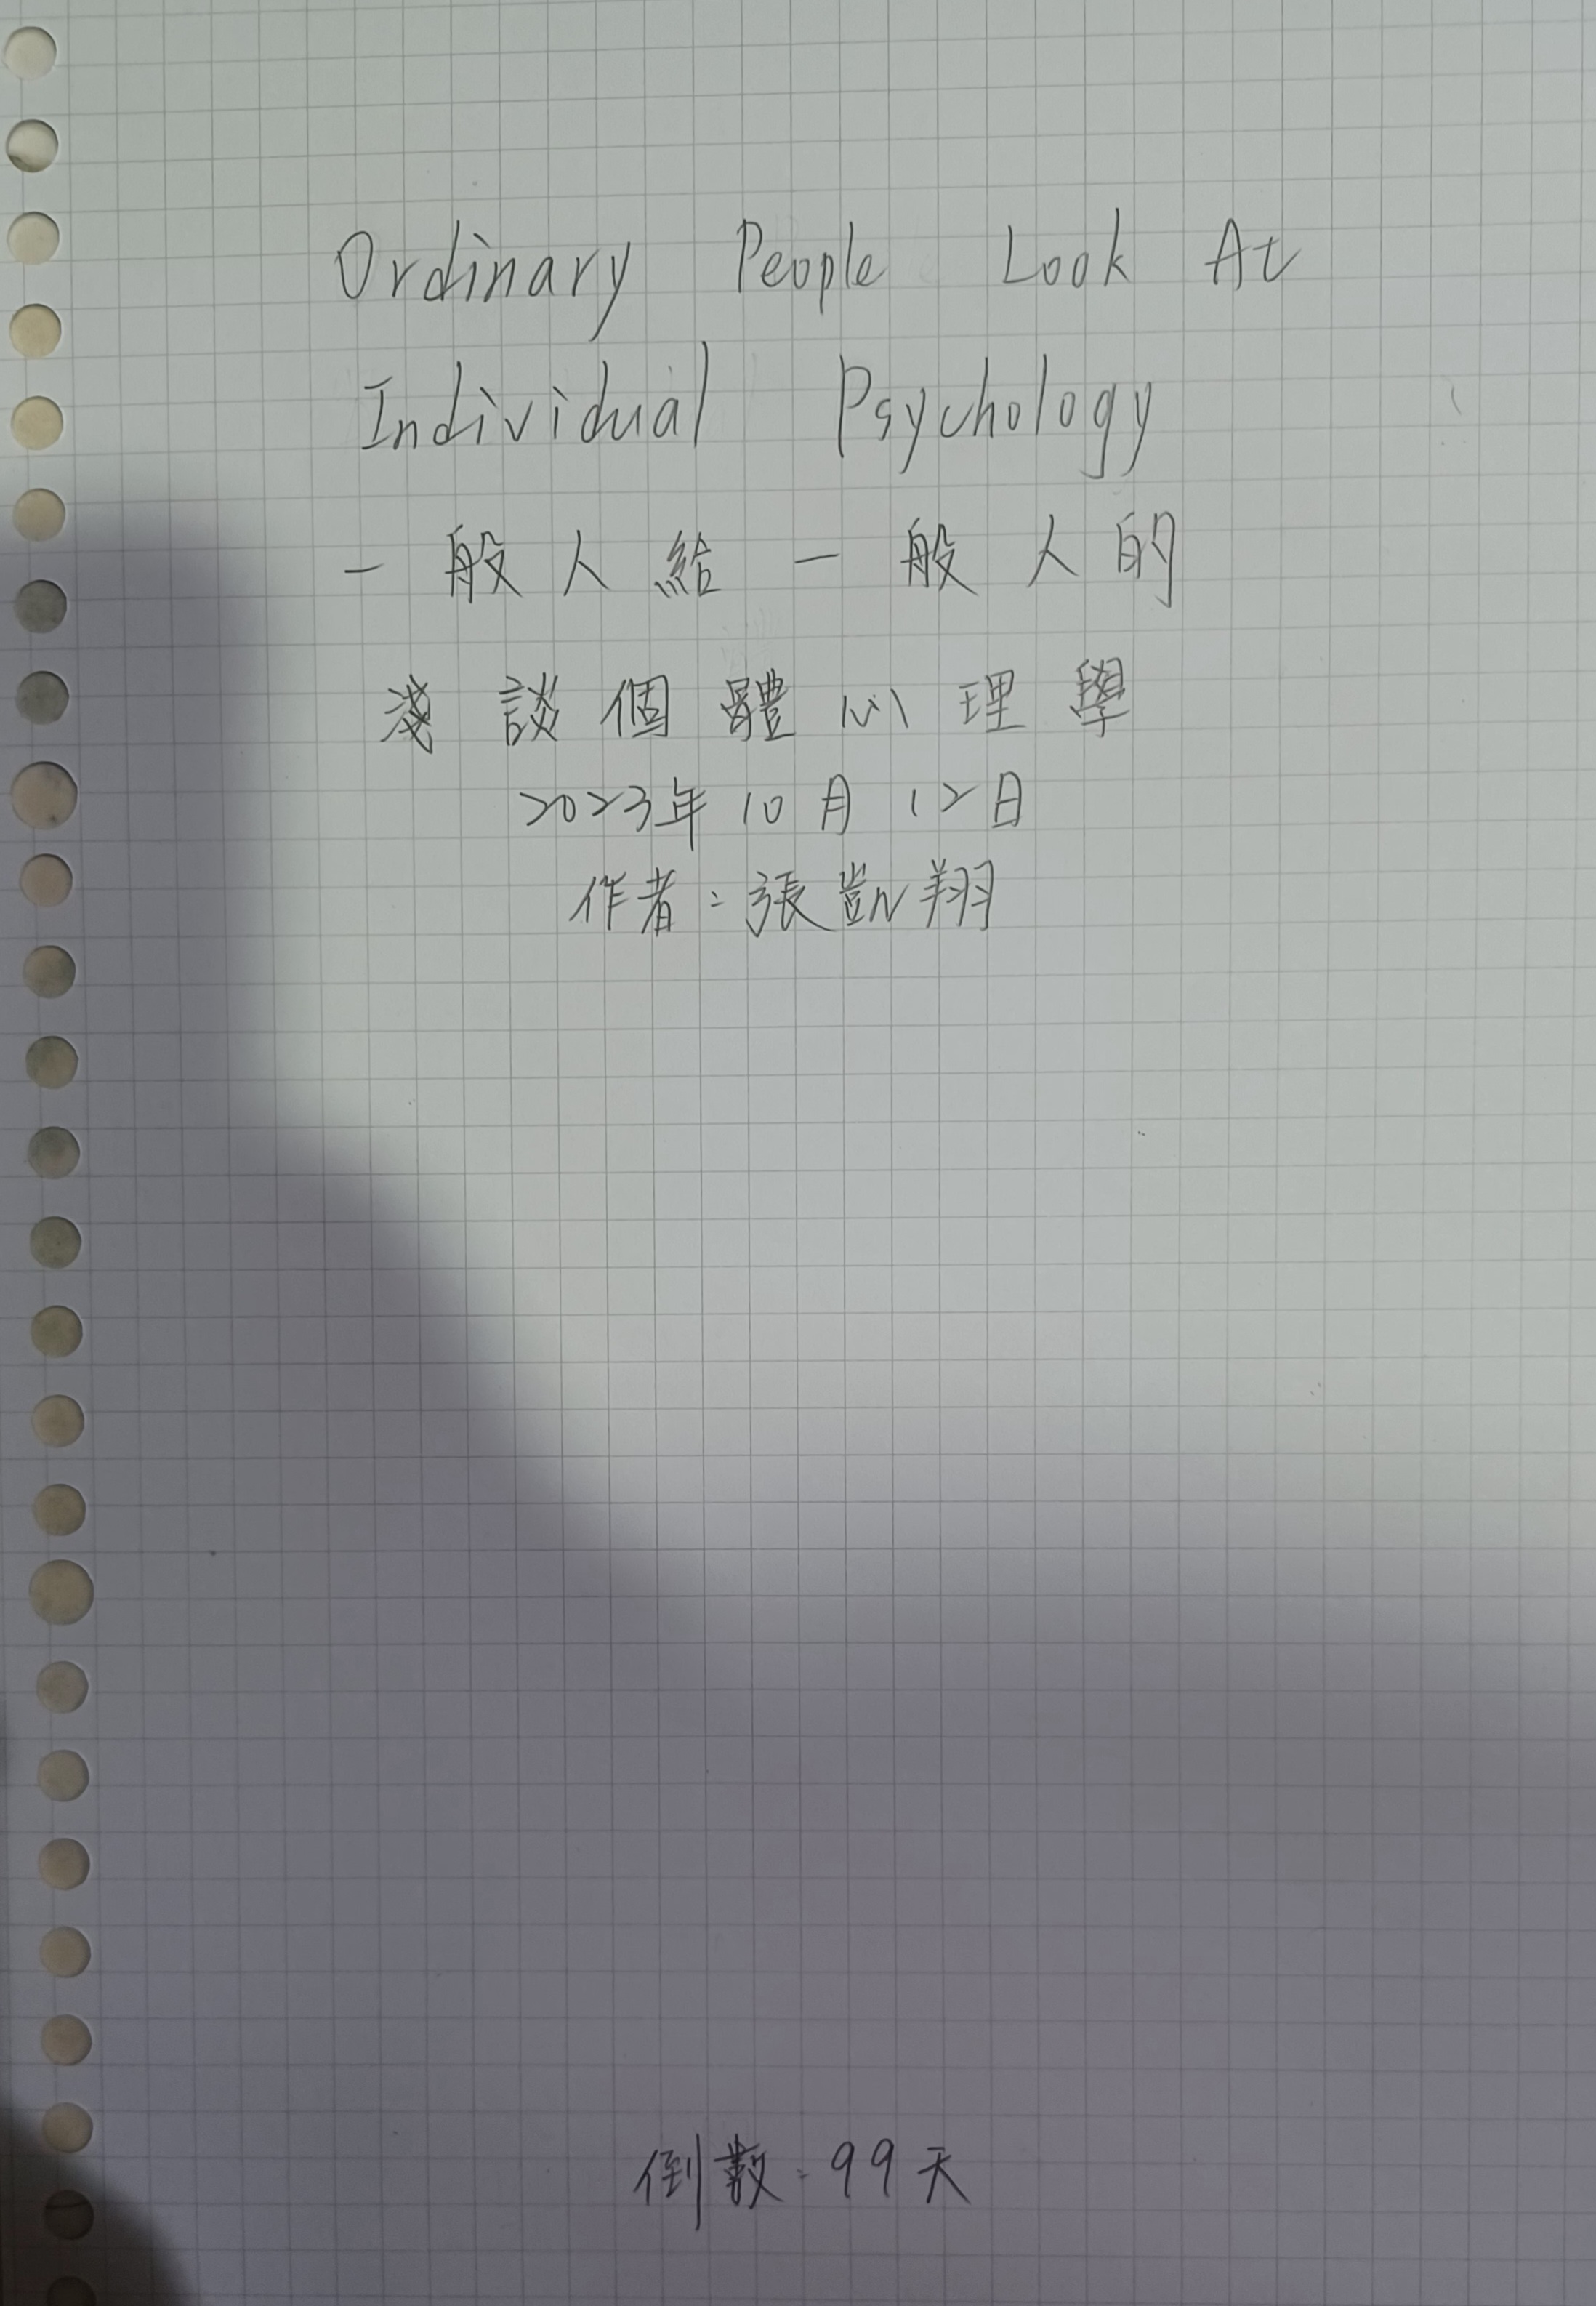 Ordinary People Look At
Individual Psychology
一般人給一般人的
淺談個體心理學
2023年10月12日
作者:張凱翔
倒數:99天